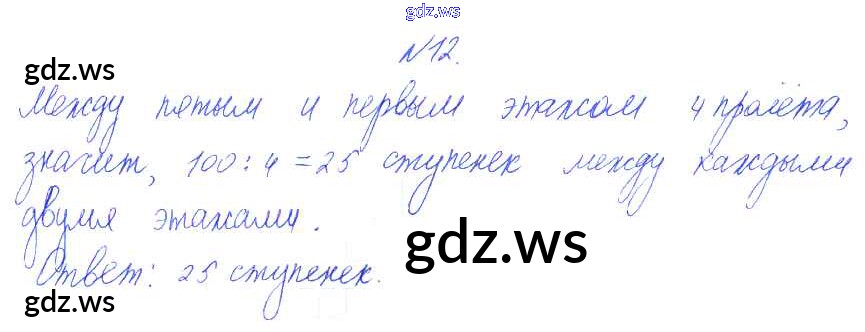 gdz.ws
N12.
gdz.ws
Между пятым и первым этажом 4 пролёта,
значит, 100 : 4 = 25 ступенек между каждыми
двумя этажами.
gdz.ws
Ответ: 25 ступенек.
gdz.ws